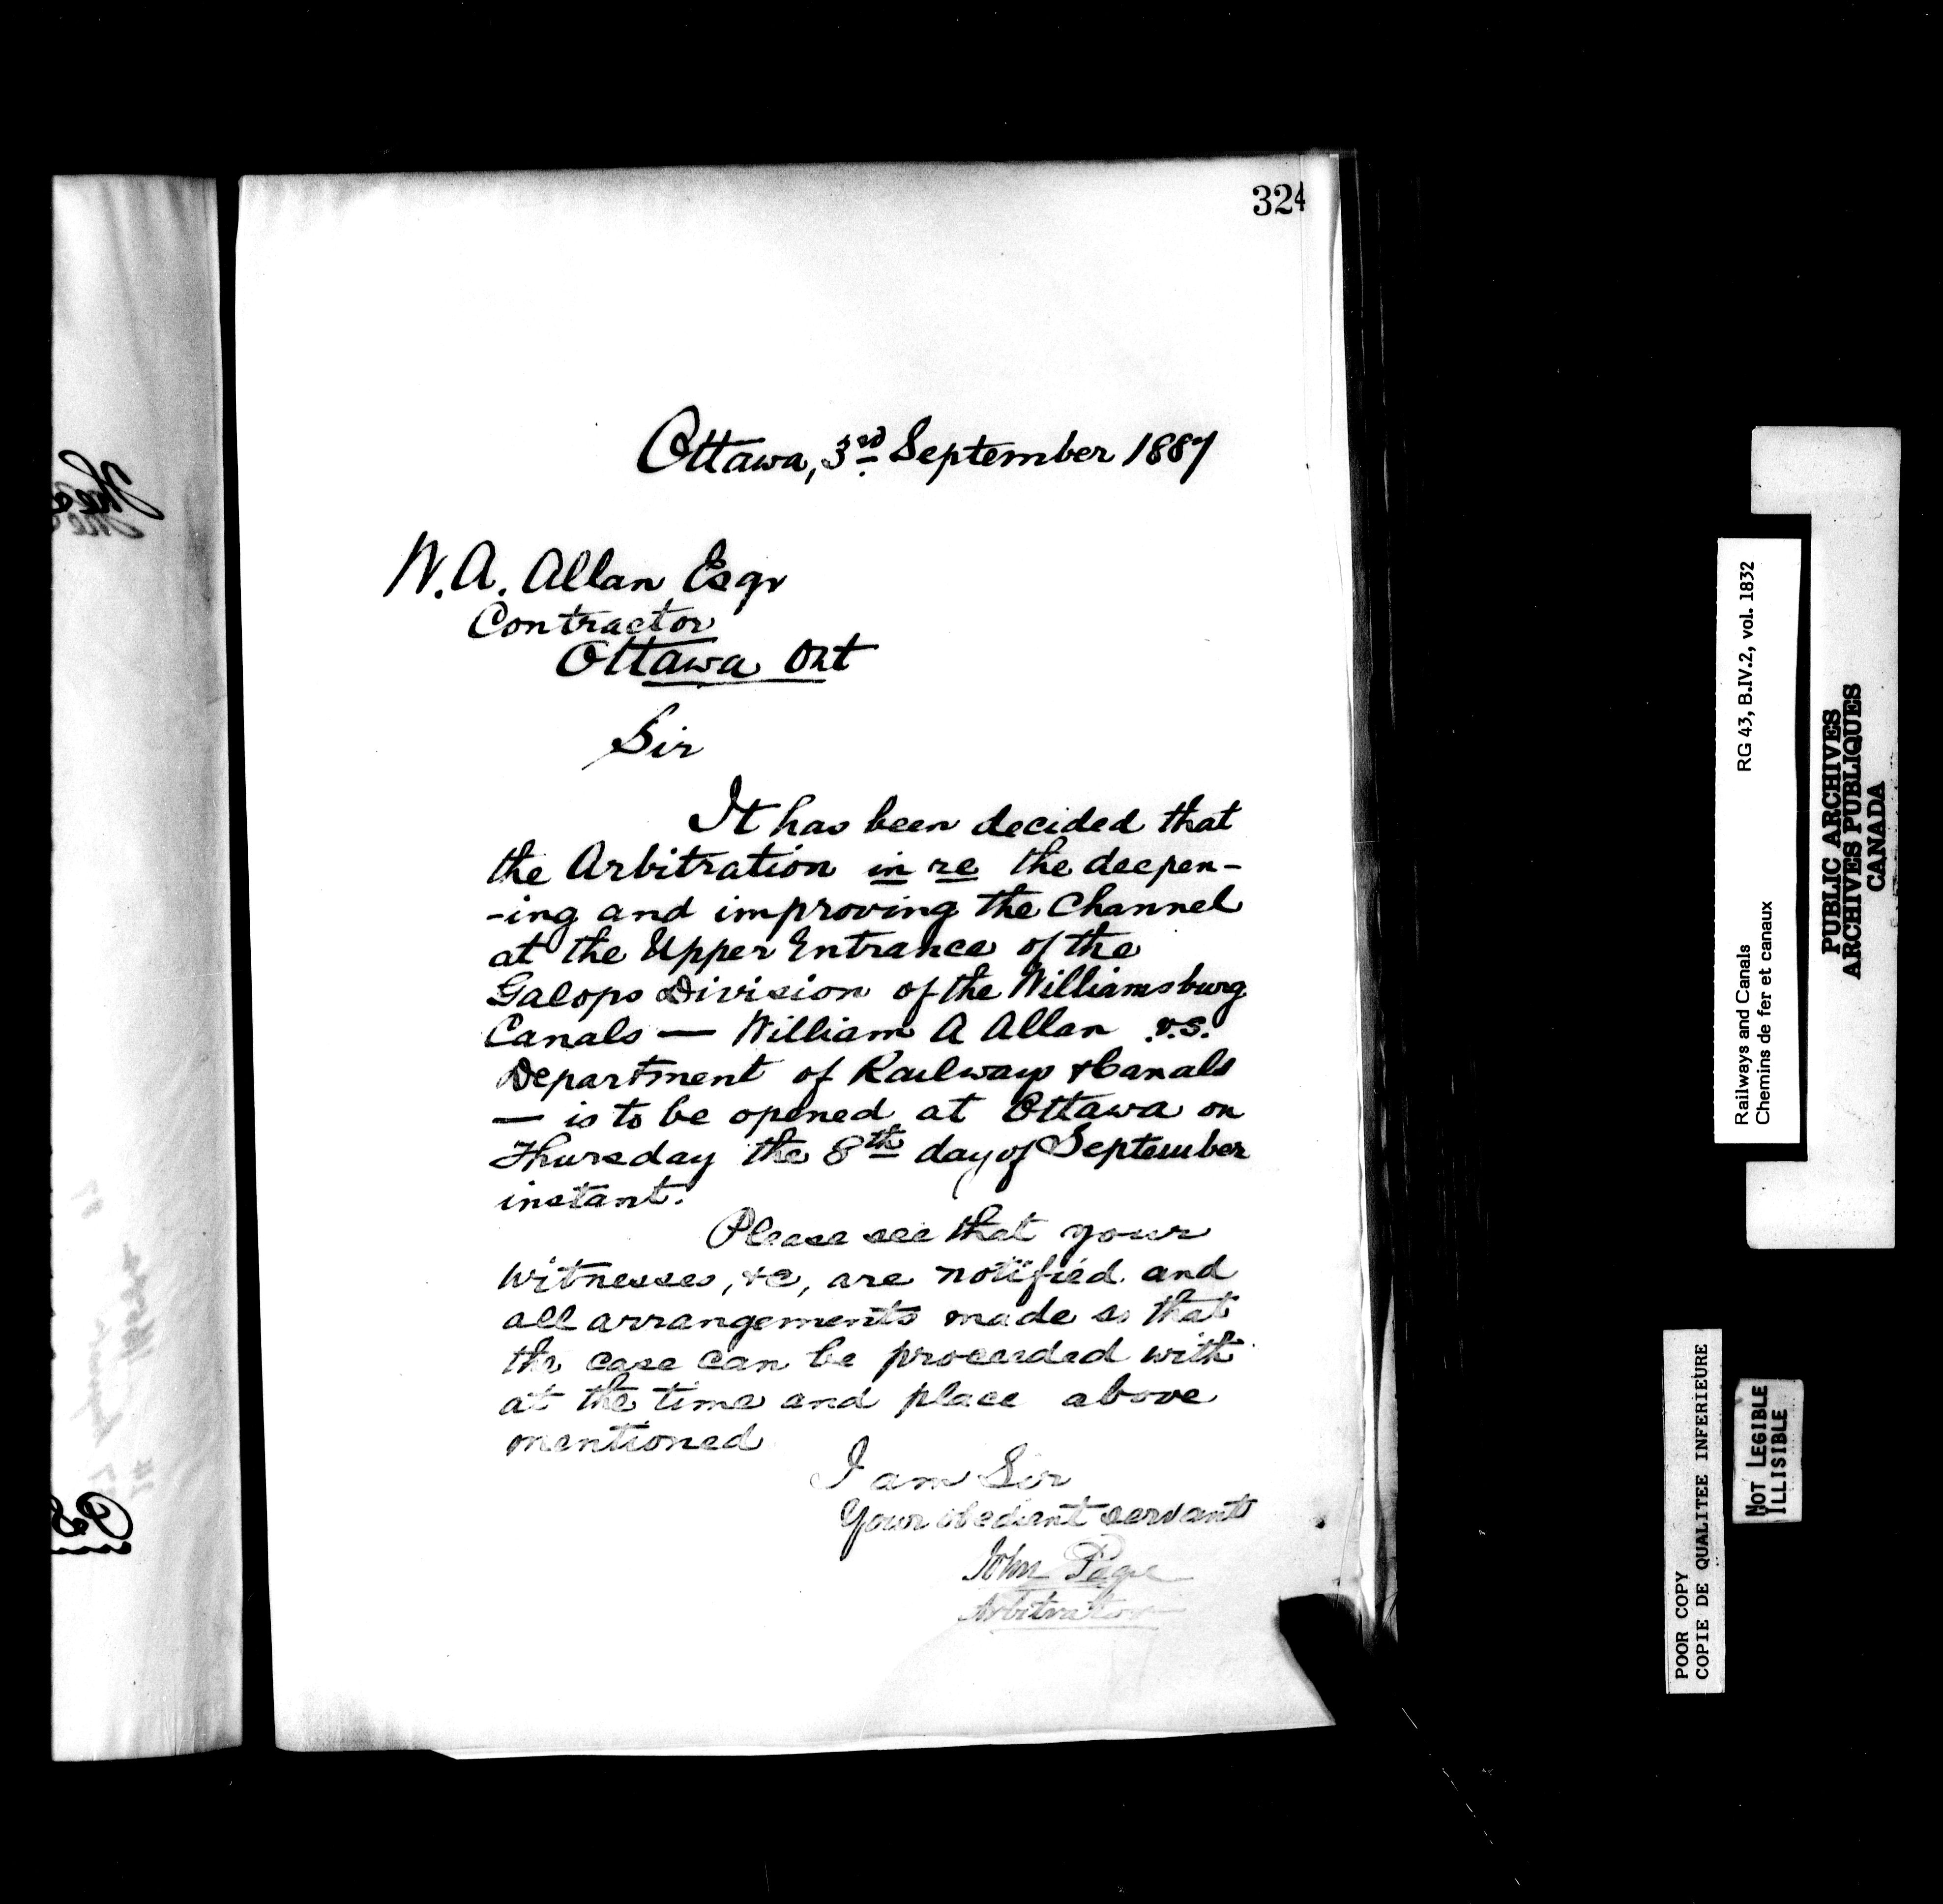 324
Ottawa, 3rd September 1887
W. A. Allan Esqr
Contractor
Ottawa Ont
Sir
It has been decided that
the Arbitration in re the deepen-
-ing and improving the Channel
at the Upper Entrance of the
Galops Division of the Williamsburg
Canals — William A Allan .v.s.
Department of Railways & Canals
— is to be opened at Ottawa on
Thursday the 8th day of September
instant.
Please see that your
witnesses, &c, are notified and
all arrangements made so that
the case can be proceeded with
at the time and place above
mentioned
I am Sir
Your obedient servant
John Page
Arbitrator
Railways and Canals RG 43, B.IV.2, vol. 1832
Chemins de fer et canaux
PUBLIC ARCHIVES
ARCHIVES PUBLIQUES
CANADA
POOR COPY
COPIE DE QUALITEE INFERIEURE
NOT LEGIBLE
ILLISIBLE